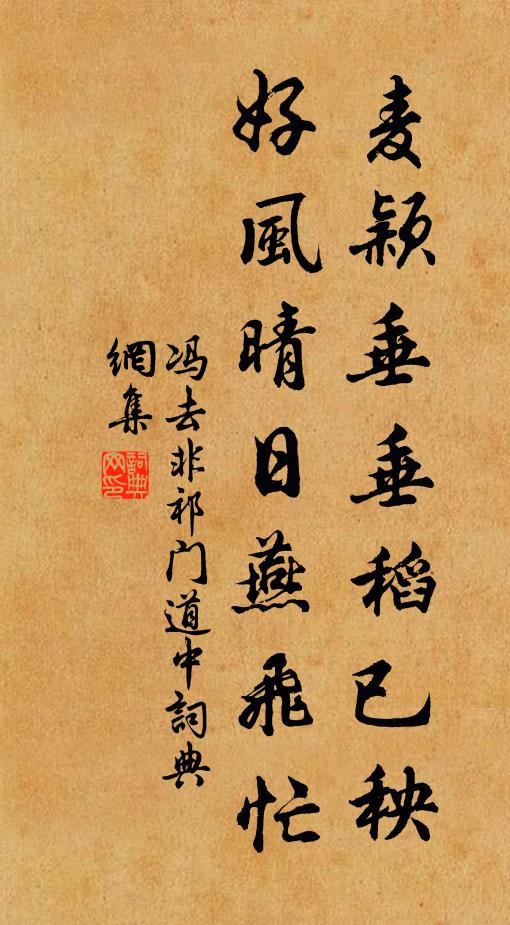 麦颖垂垂稻已秧
好風晴日燕飛忙
冯去非祁门道中詞典
網集
詞典
网印